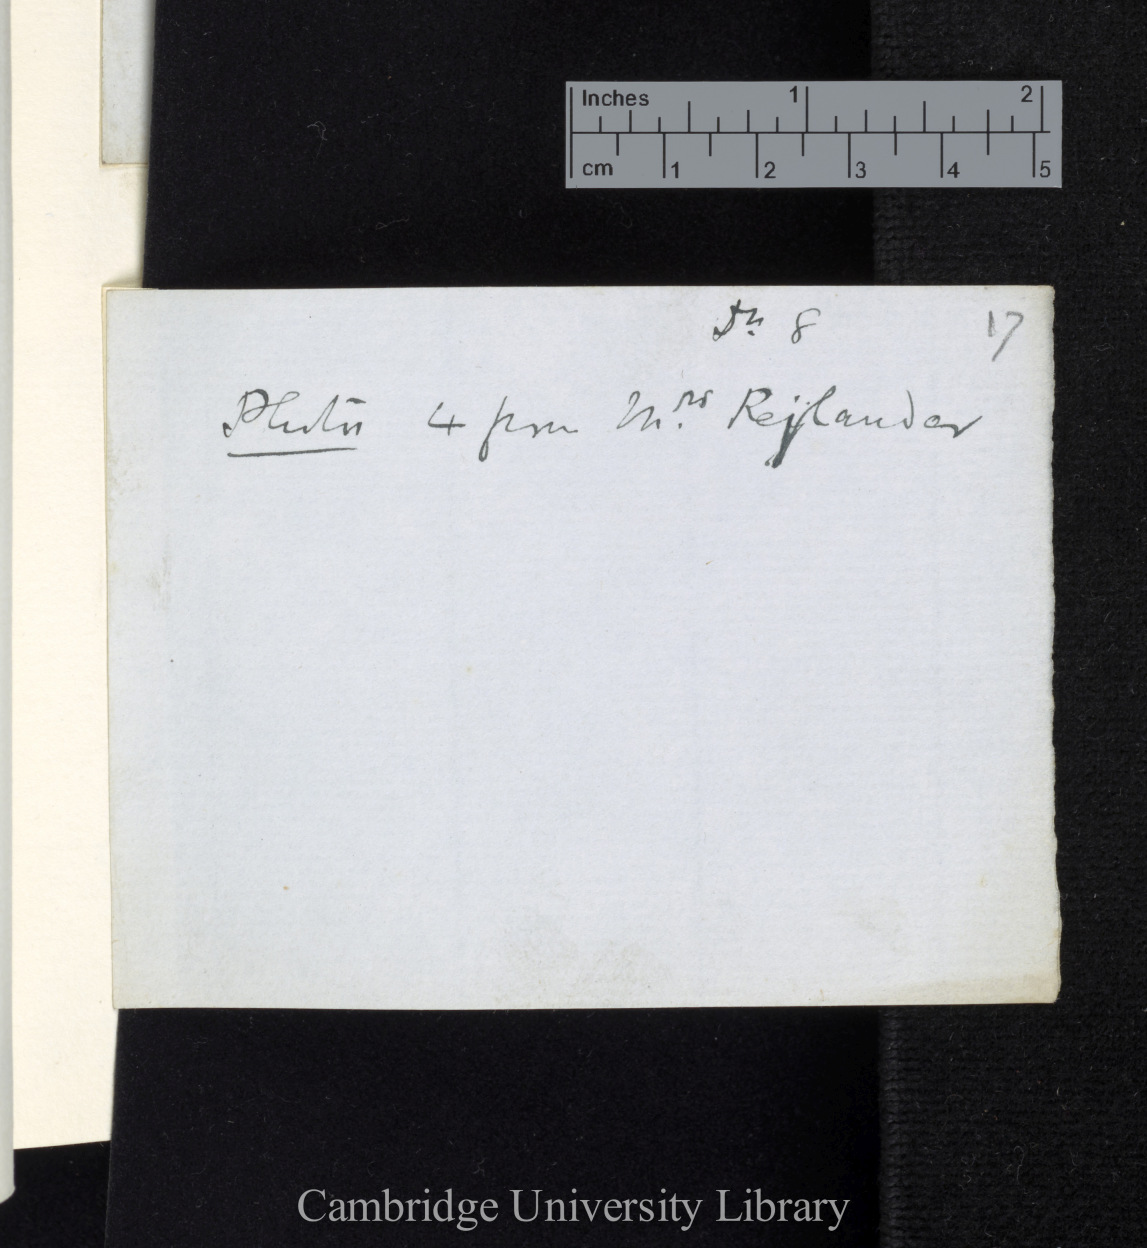 Inches 1 2
cm 1 2 3 4 5
17
4 from Mrs Rejlander
Cambridge University Library